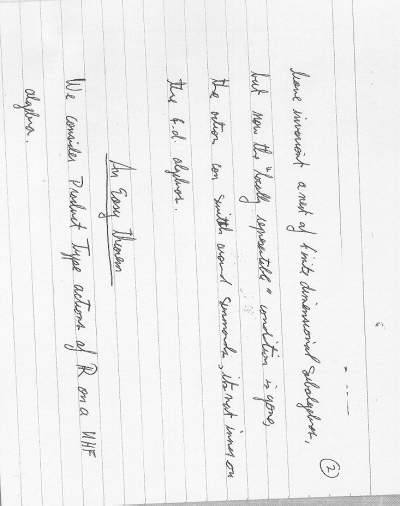 ②
leave invariant a nest of finite dimensional subalgebras,
but now the "locally representable" condition is gone,
the action can switch around summands, its not inner on
the f.d. algebras.
An Easy Theorem
We consider Product Type actions of R on a UHF
algebra.